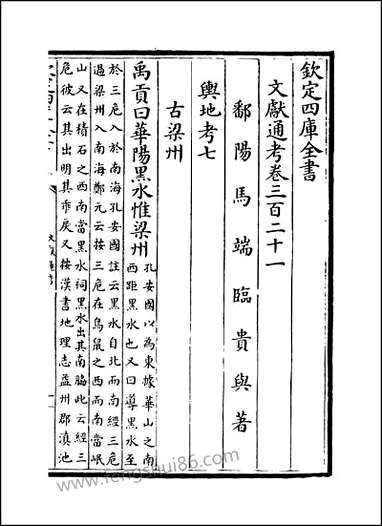 欽定四庫全書
文獻通考卷三百二十一
鄱陽馬端臨貴與著
輿地考七
古梁州
禹貢曰華陽黑水惟梁州孔安國以為東據華山之南
西距黑水也又曰導黑水至
於三危入於南海孔安國註云黑水自北而南經三危
過梁州入南海鄭元云按三危在鳥鼠之西而南當岷
山又在積石之西南當黑水祠黑水出其南脇此云經三
危彼云其出明其乖戾又按漢書地理志益州郡滇池
www.fengshui86.com